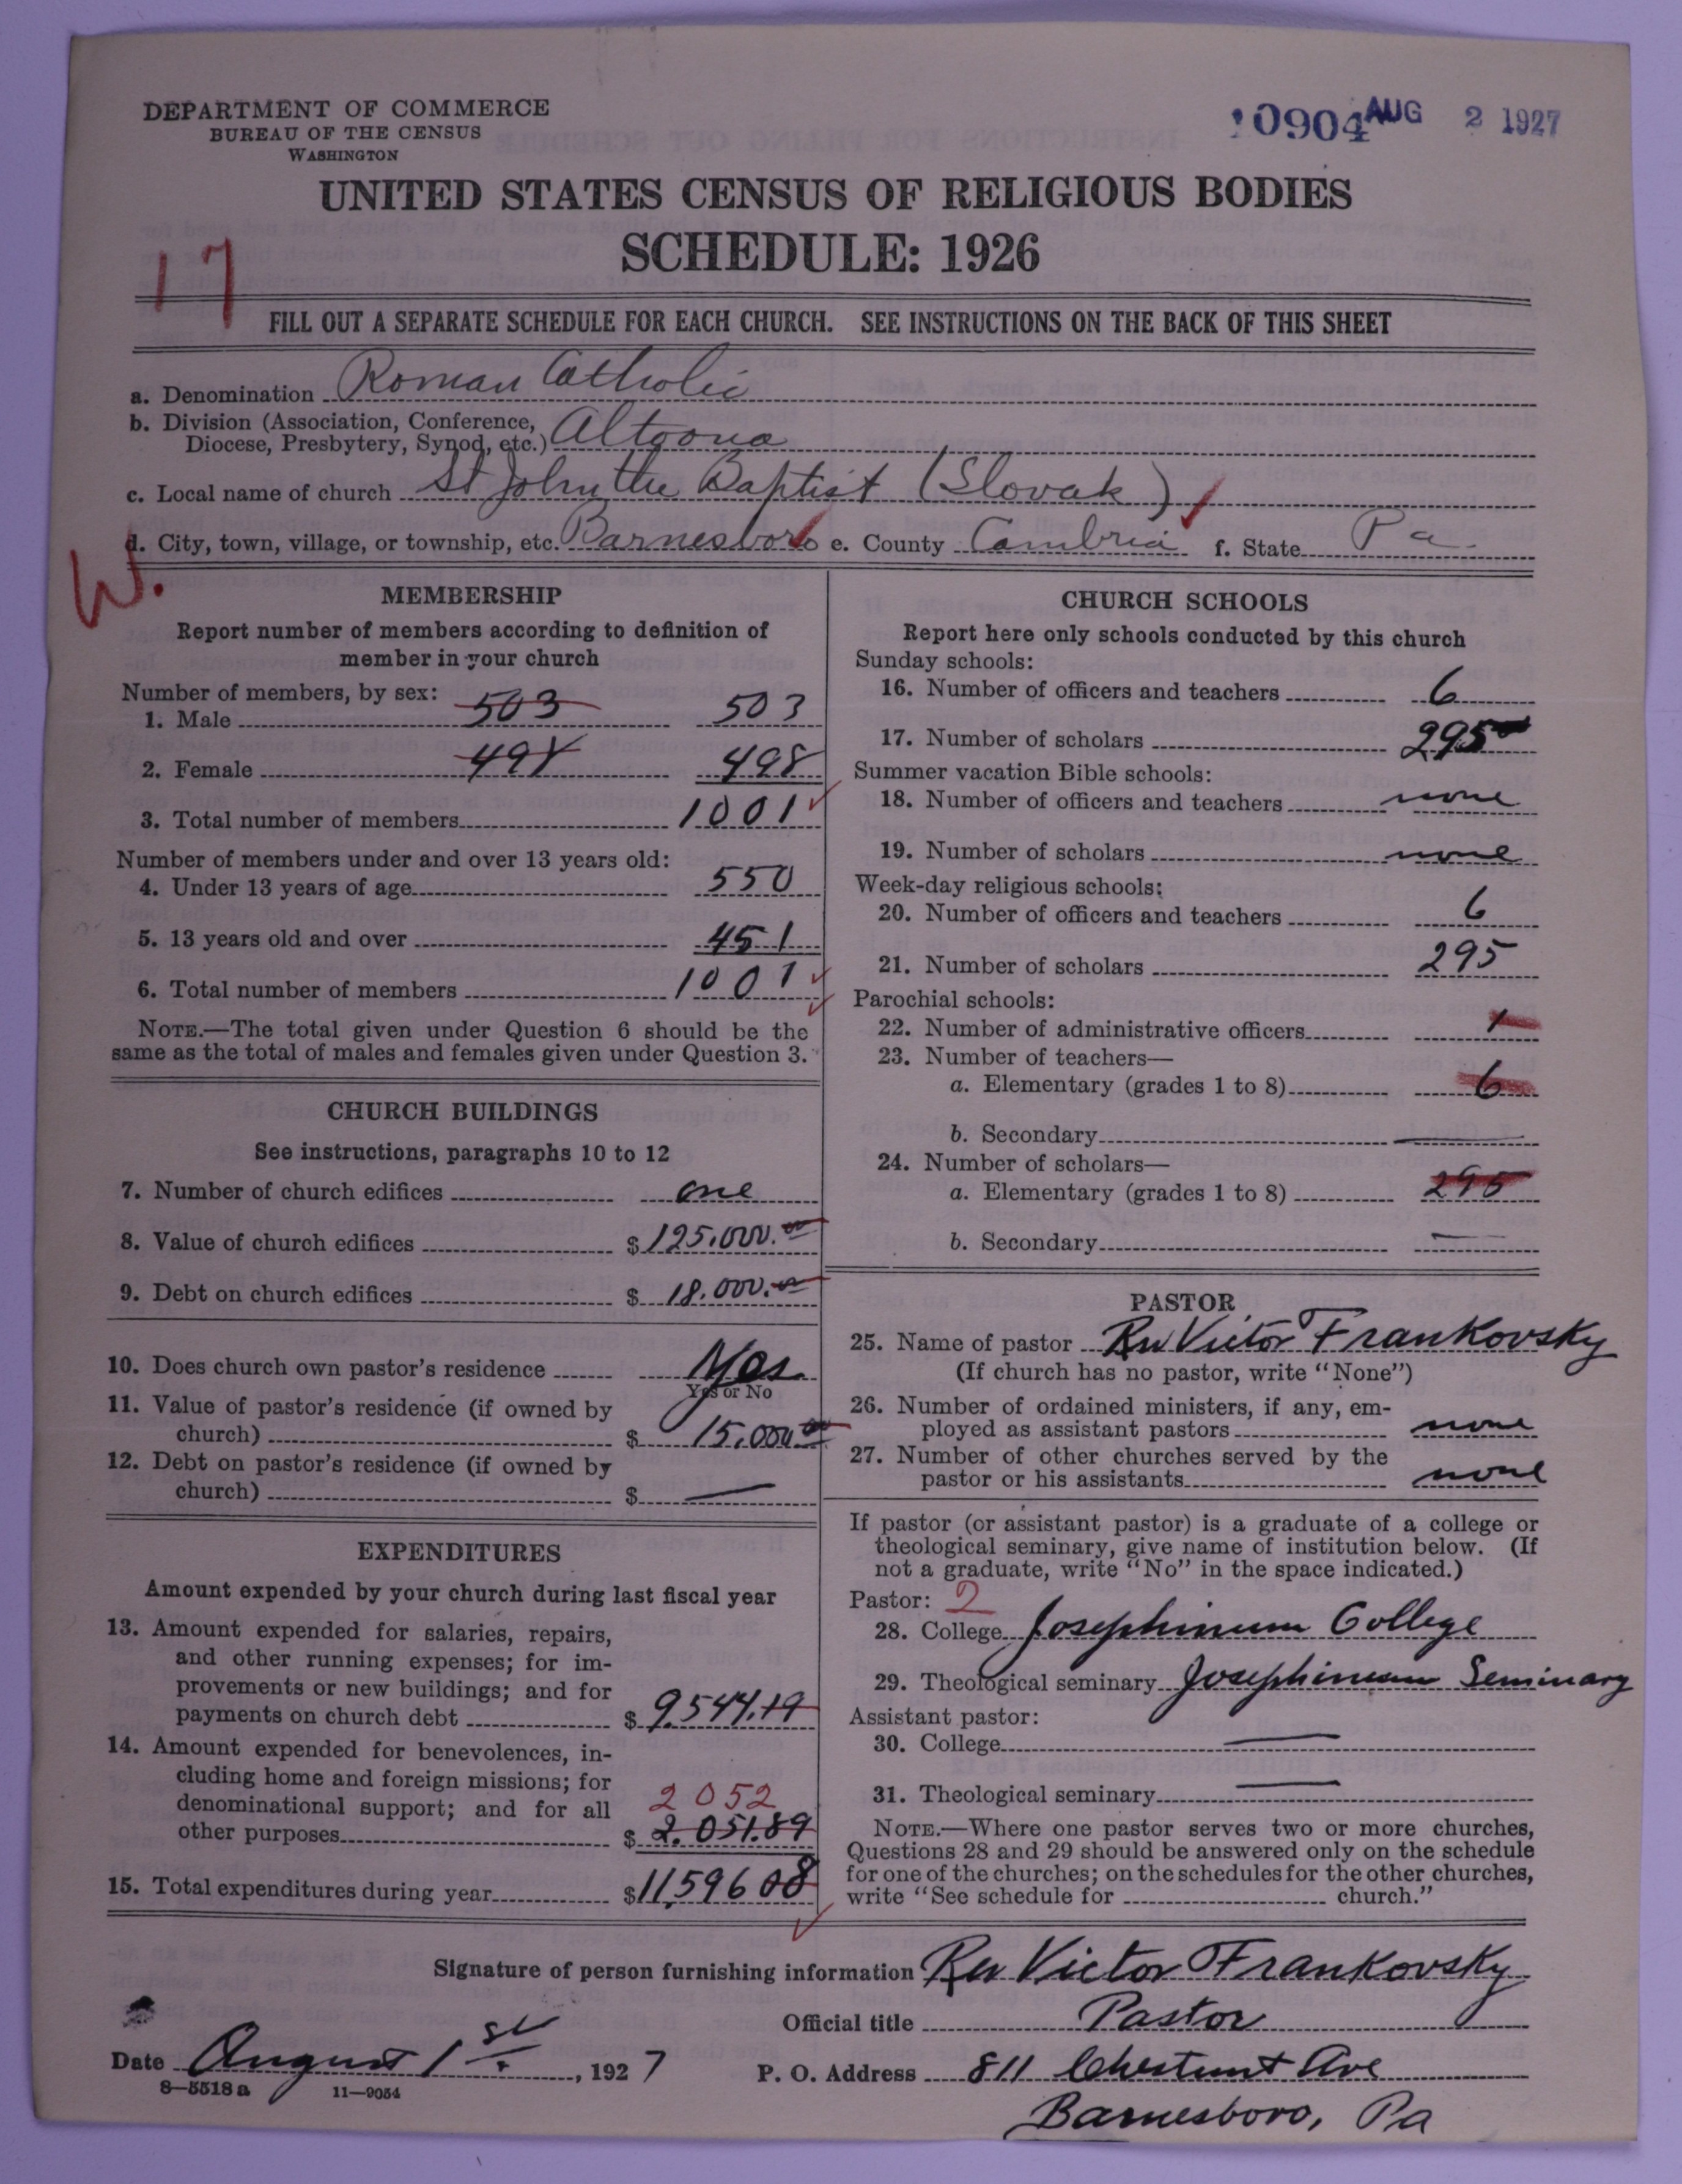 DEPARTMENT OF COMMERCE
BUREAU OF THE CENSUS
WASHINGTON
10904 AUG 2 1927
UNITED STATES CENSUS OF RELIGIOUS BODIES
SCHEDULE: 1926
17
FILL OUT A SEPARATE SCHEDULE FOR EACH CHURCH. SEE INSTRUCTIONS ON THE BACK OF THIS SHEET
a. Denomination Roman Catholic
b. Division (Association, Conference,
Diocese, Presbytery, Synod, etc.) Altoona
c. Local name of church St John the Baptist (Slovak)
d. City, town, village, or township, etc. Barnesboro e. County Cambria f. State Pa.
W.
MEMBERSHIP
Report number of members according to definition of
member in your church
Number of members, by sex:
1. Male 503 503
2. Female 498 498
3. Total number of members 1001
Number of members under and over 13 years old:
4. Under 13 years of age 550
5. 13 years old and over 451
6. Total number of members 1001
NOTE.—The total given under Question 6 should be the
same as the total of males and females given under Question 3.
CHURCH BUILDINGS
See instructions, paragraphs 10 to 12
7. Number of church edifices one
8. Value of church edifices $125,000.00
9. Debt on church edifices $ 18.000.00
10. Does church own pastor's residence Yes
Yes or No
11. Value of pastor's residence (if owned by
church) $ 15,000.00
12. Debt on pastor's residence (if owned by
church) $ —
EXPENDITURES
Amount expended by your church during last fiscal year
13. Amount expended for salaries, repairs,
and other running expenses; for im-
provements or new buildings; and for
payments on church debt $ 9.544.19
14. Amount expended for benevolences, in-
cluding home and foreign missions; for
denominational support; and for all 2052
other purposes $ 2.051.89
15. Total expenditures during year $11,596 08
CHURCH SCHOOLS
Report here only schools conducted by this church
Sunday schools:
16. Number of officers and teachers 6
17. Number of scholars 295
Summer vacation Bible schools:
18. Number of officers and teachers none
19. Number of scholars none
Week-day religious schools:
20. Number of officers and teachers 6
21. Number of scholars 295
Parochial schools:
22. Number of administrative officers 1
23. Number of teachers—
a. Elementary (grades 1 to 8) 6
b. Secondary —
24. Number of scholars—
a. Elementary (grades 1 to 8) 295
b. Secondary —
PASTOR
25. Name of pastor Rev Victor Frankovsky
(If church has no pastor, write "None")
26. Number of ordained ministers, if any, em-
ployed as assistant pastors none
27. Number of other churches served by the
pastor or his assistants none
If pastor (or assistant pastor) is a graduate of a college or
theological seminary, give name of institution below. (If
not a graduate, write "No" in the space indicated.)
Pastor: 2
28. College Josephinum College
29. Theological seminary Josephinum Seminary
Assistant pastor:
30. College —
31. Theological seminary —
NOTE.—Where one pastor serves two or more churches,
Questions 28 and 29 should be answered only on the schedule
for one of the churches; on the schedules for the other churches,
write "See schedule for church."
Signature of person furnishing information Rev Victor Frankovsky
Official title Pastor
Date August 1st, 1927 P. O. Address 811 Chestnut Ave
8—5518a 11—9054
Barnesboro, Pa